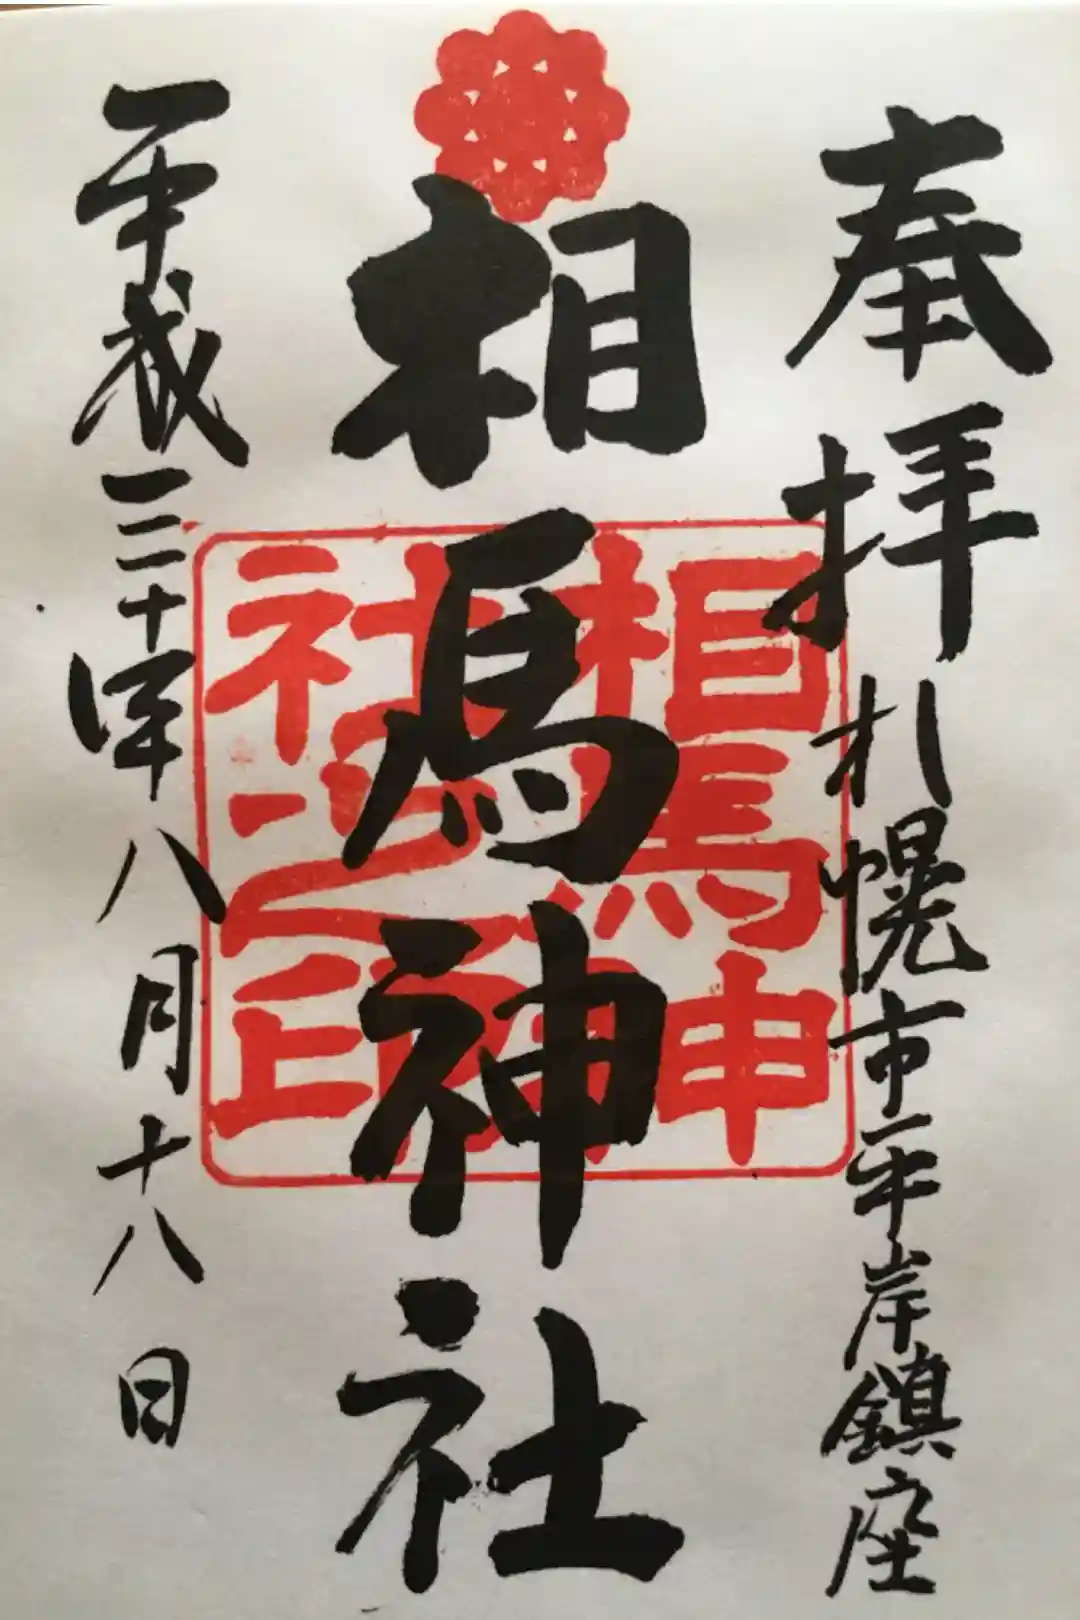 奉拝 札幌市平岸鎮座
相馬神社
相馬神社之印
平成三十年八月十八日